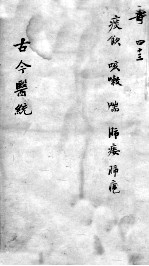 寄 四十三
痰飲 咳嗽 喘 肺痿 肺癰
古今醫統